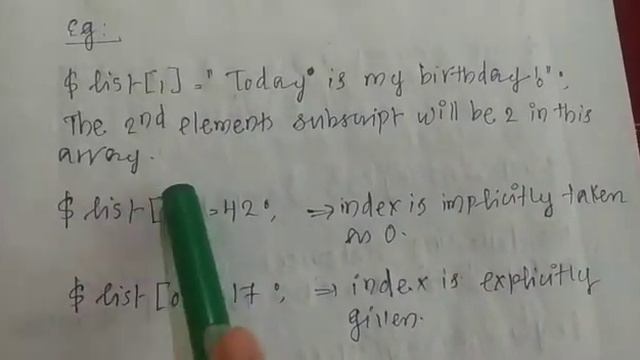 Eg:
$ list[1] = "Today is my birthday!";
The 2nd elements subscript will be 2 in this
array.
$ list[ = 42; ⇒ index is implicitly taken
as 0.
$ list[0 17; ⇒ index is explicitly
given.